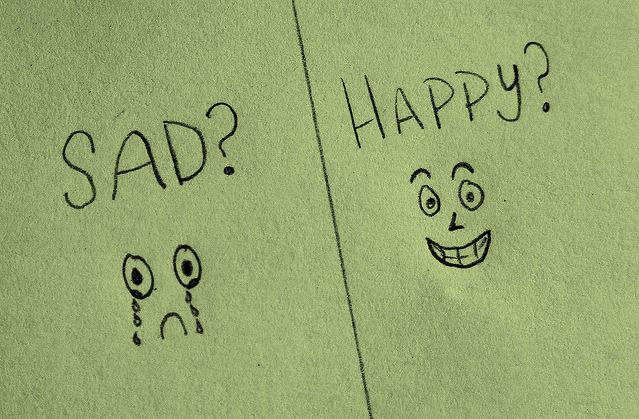 SAD?
HAPPy?